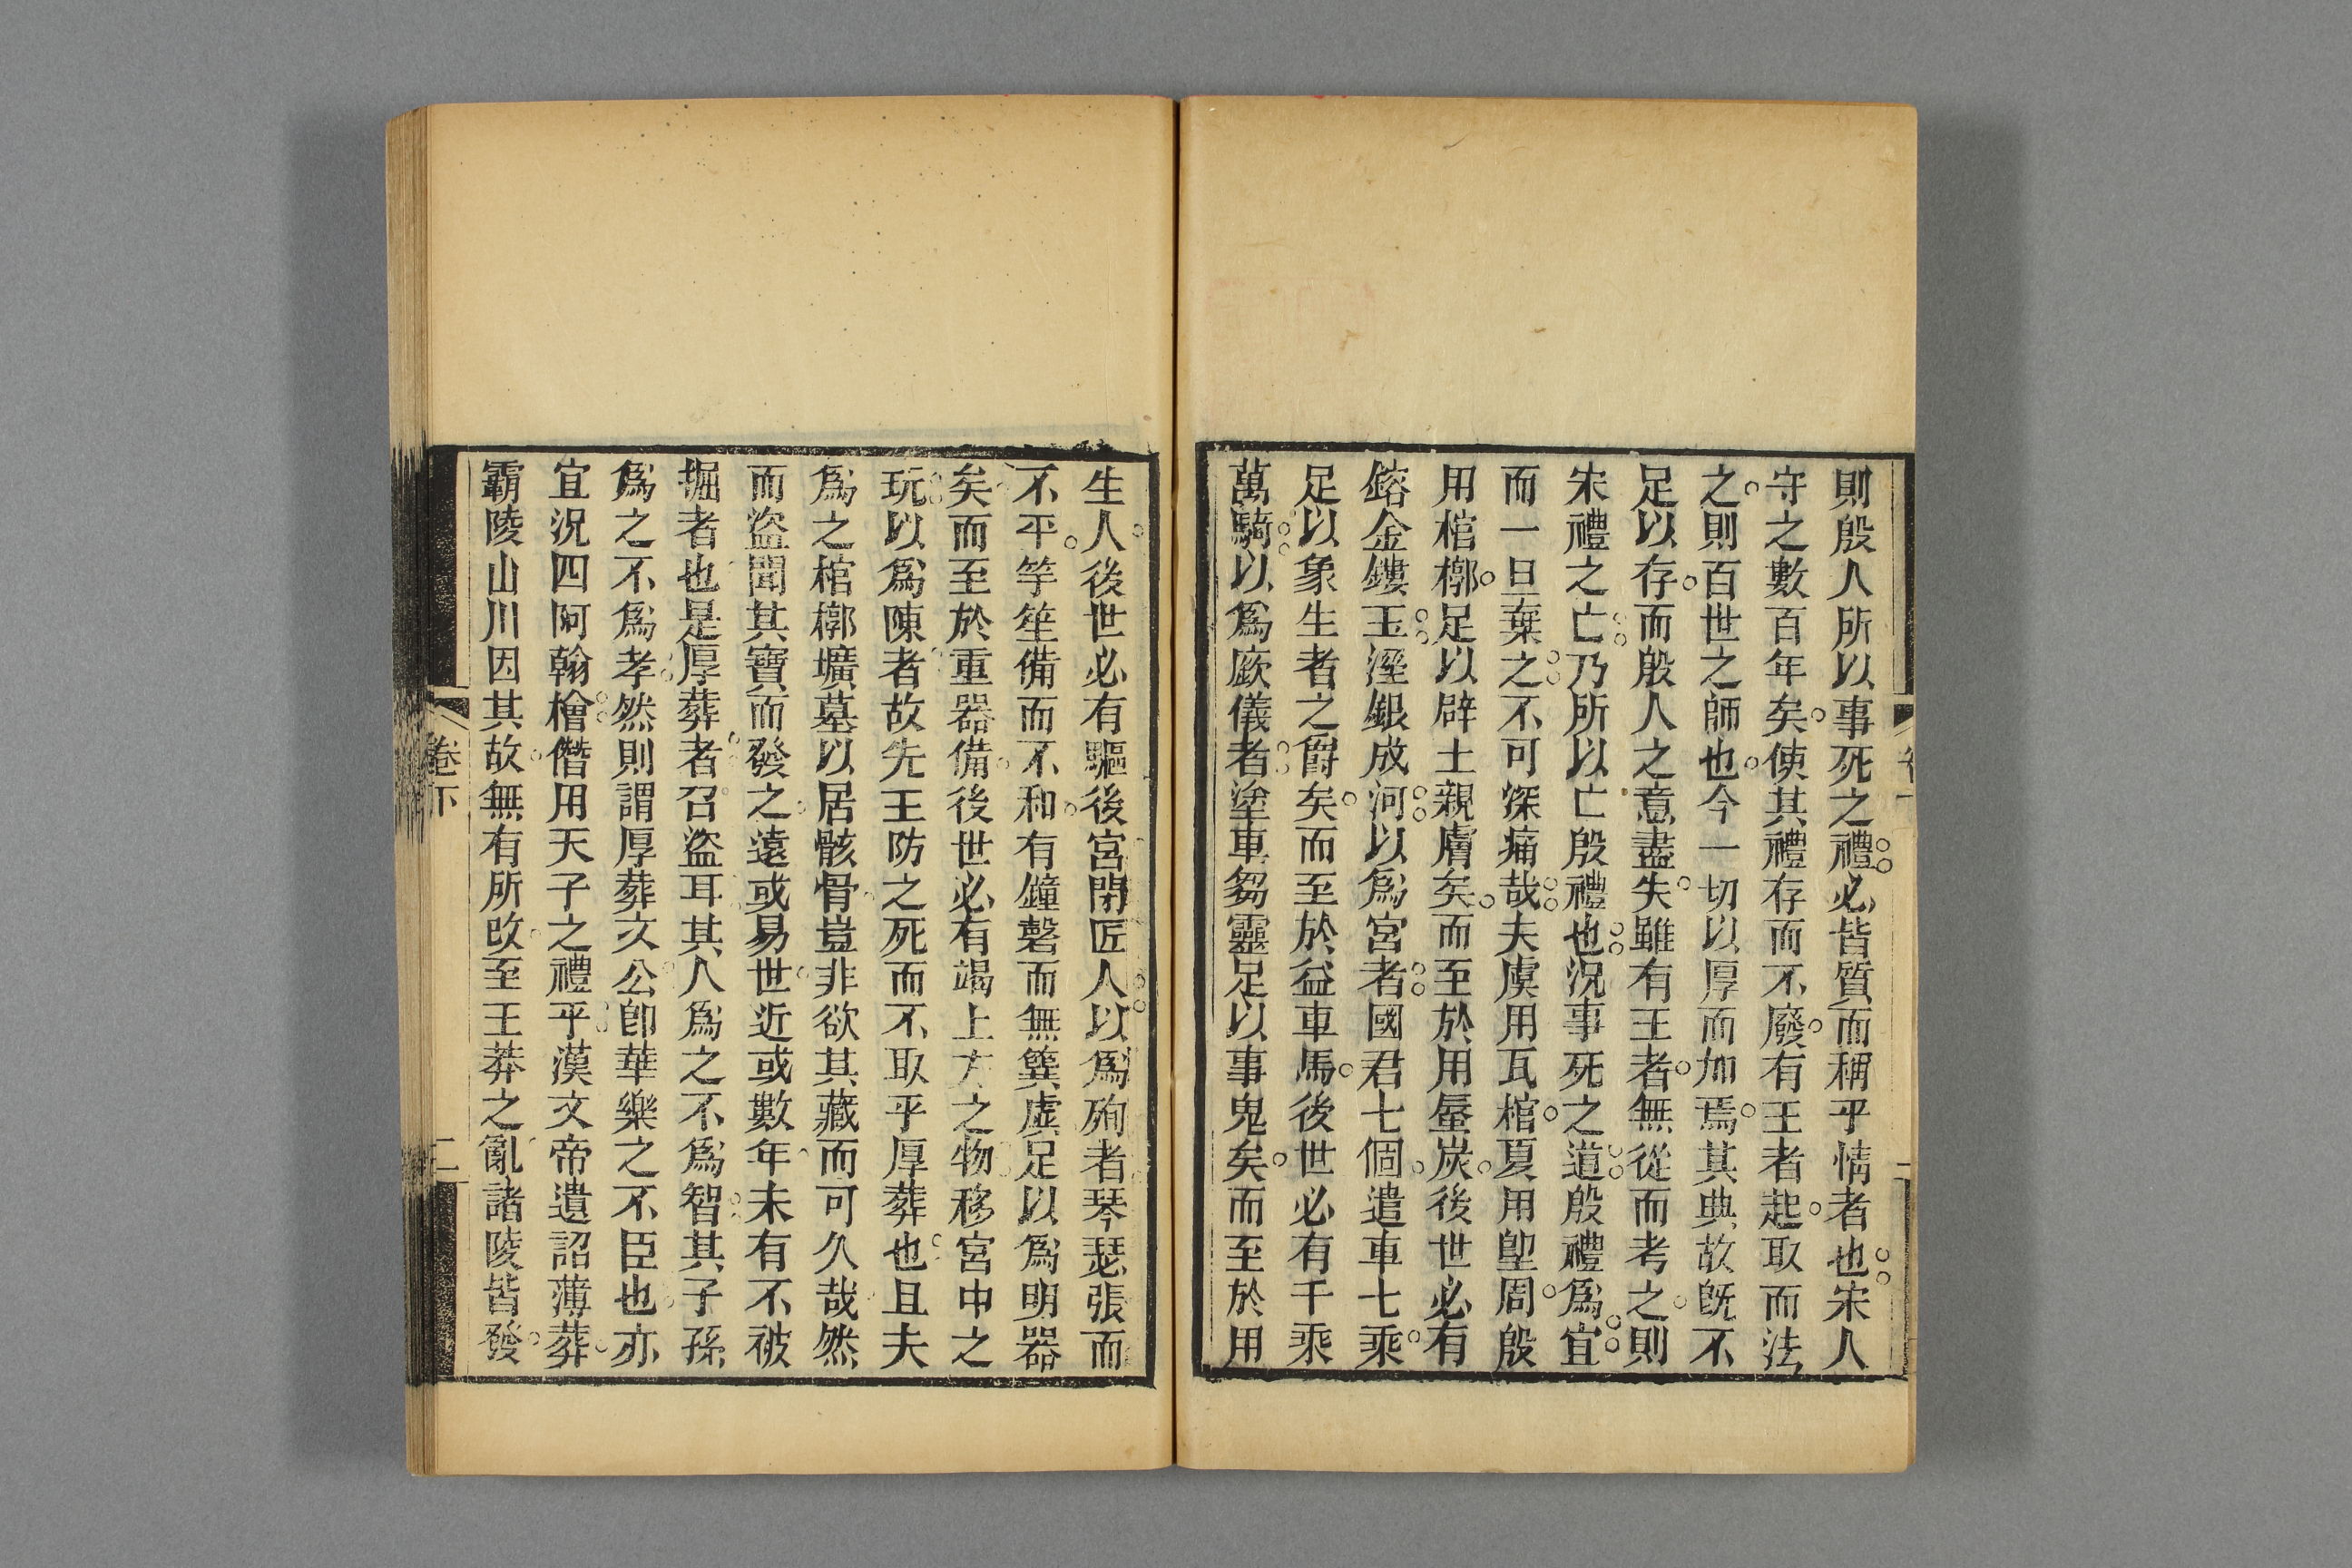 則殷人所以事死之禮必皆質而稱乎情者也宋人
守之數百年矣使其禮存而不廢有王者起取而法
之則百世之師也今一切以厚而加焉其典故既不
足以存而殷人之意盡失雖有王者無從而考之則
宋禮之亡乃所以亡殷禮也況事死之道殷禮為宜
而一旦棄之不可深痛哉夫虞用瓦棺夏用堲周殷
用棺槨足以辟土親膚矣而至於用蜃炭後世必有
鎔金鏤玉溼銀成河以為宮者國君七個遣車七乘
足以象生者之爵矣而至於益車馬後世必有千乘
萬騎以為廞儀者塗車芻靈足以事鬼矣而至於用
生人後世必有驅後宮閉匠人以為殉者琴瑟張而
不平竽笙備而不和有鐘磬而無簨虡足以為明器
矣而至於重器備後世必有竭上方之物移宮中之
玩以為陳者故先王防之死而不取乎厚葬也且夫
為之棺槨壙墓以居骸骨豈非欲其藏而可久哉然
而盜聞其寶而發之遠或易世近或數年未有不被
掘者也是厚葬者召盜耳其人為之不為智其子孫
為之不為孝然則謂厚葬文公卽華樂之不臣也亦
宜況四阿翰檜僭用天子之禮乎漢文帝遺詔薄葬
霸陵山川因其故無有所改至王莽之亂諸陵皆發
卷下
二